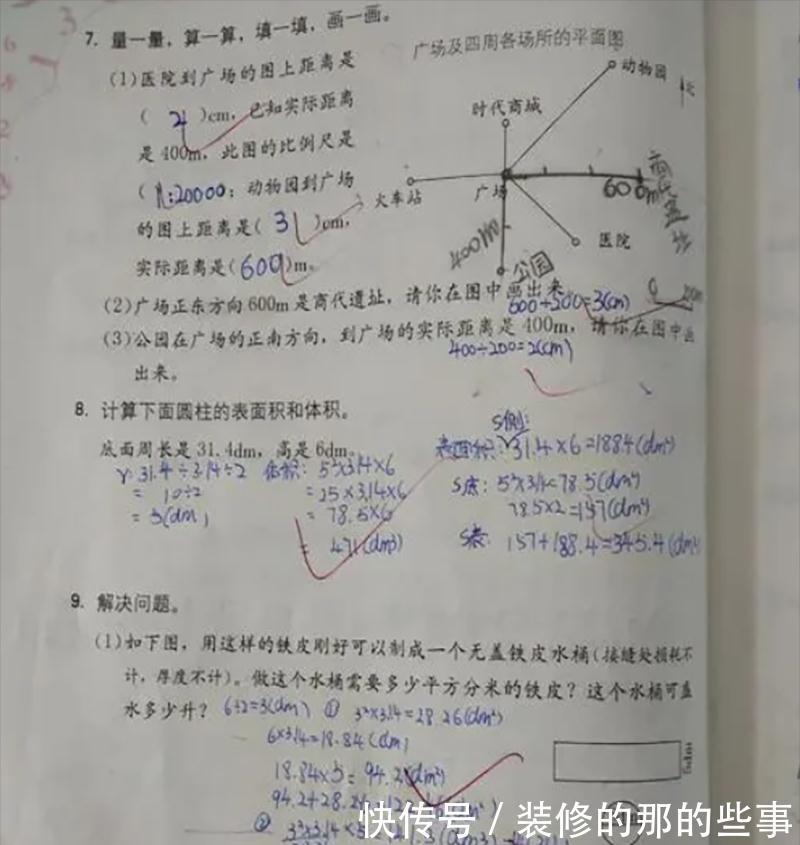 7. 量一量，算一算，填一填，画一画。
广场及四周各场所的平面图
(1)医院到广场的图上距离是
( 2 )cm，已知实际距离
是400m，此图的比例尺是
(1:20000；动物园到广场
的图上距离是( 3 )cm，
实际距离是(600)m。
动物园
北
时代商城
火车站
广场
600m
商代遗址
400m
医院
公园
(2)广场正东方向600m是商代遗址，请你在图中画出来。
600÷200=3(cm)
(3)公园在广场的正南方向，到广场的实际距离是400m，请你在图中画
400÷200=2(cm)
出来。
8. 计算下面圆柱的表面积和体积。
底面周长是31.4dm，高是6dm。
r:31.4÷3.14÷2
=10÷2
=5(dm)
体积：5²×3.14×6
=25×3.14×6
=78.5×6
=471(dm³)
S侧：
表面积：31.4×6=188.4(dm²)
S底：5²×3.14=78.5(dm²)
78.5×2=157(dm²)
S表：157+188.4=345.4(dm²)
9. 解决问题。
(1)如下图，用这样的铁皮刚好可以制成一个无盖铁皮水桶(接缝处损耗不
计，厚度不计)。做这个水桶需要多少平方分米的铁皮？这个水桶可盛
水多少升？
6÷2=3(dm) ① 3²×3.14=28.26(dm²)
6×3.14=18.84(dm)
18.84×5=94.2(dm²)
94.2+28.26
5dm
② 3²×3.14×5=141.3(dm³)
快传号/装修的那的些事